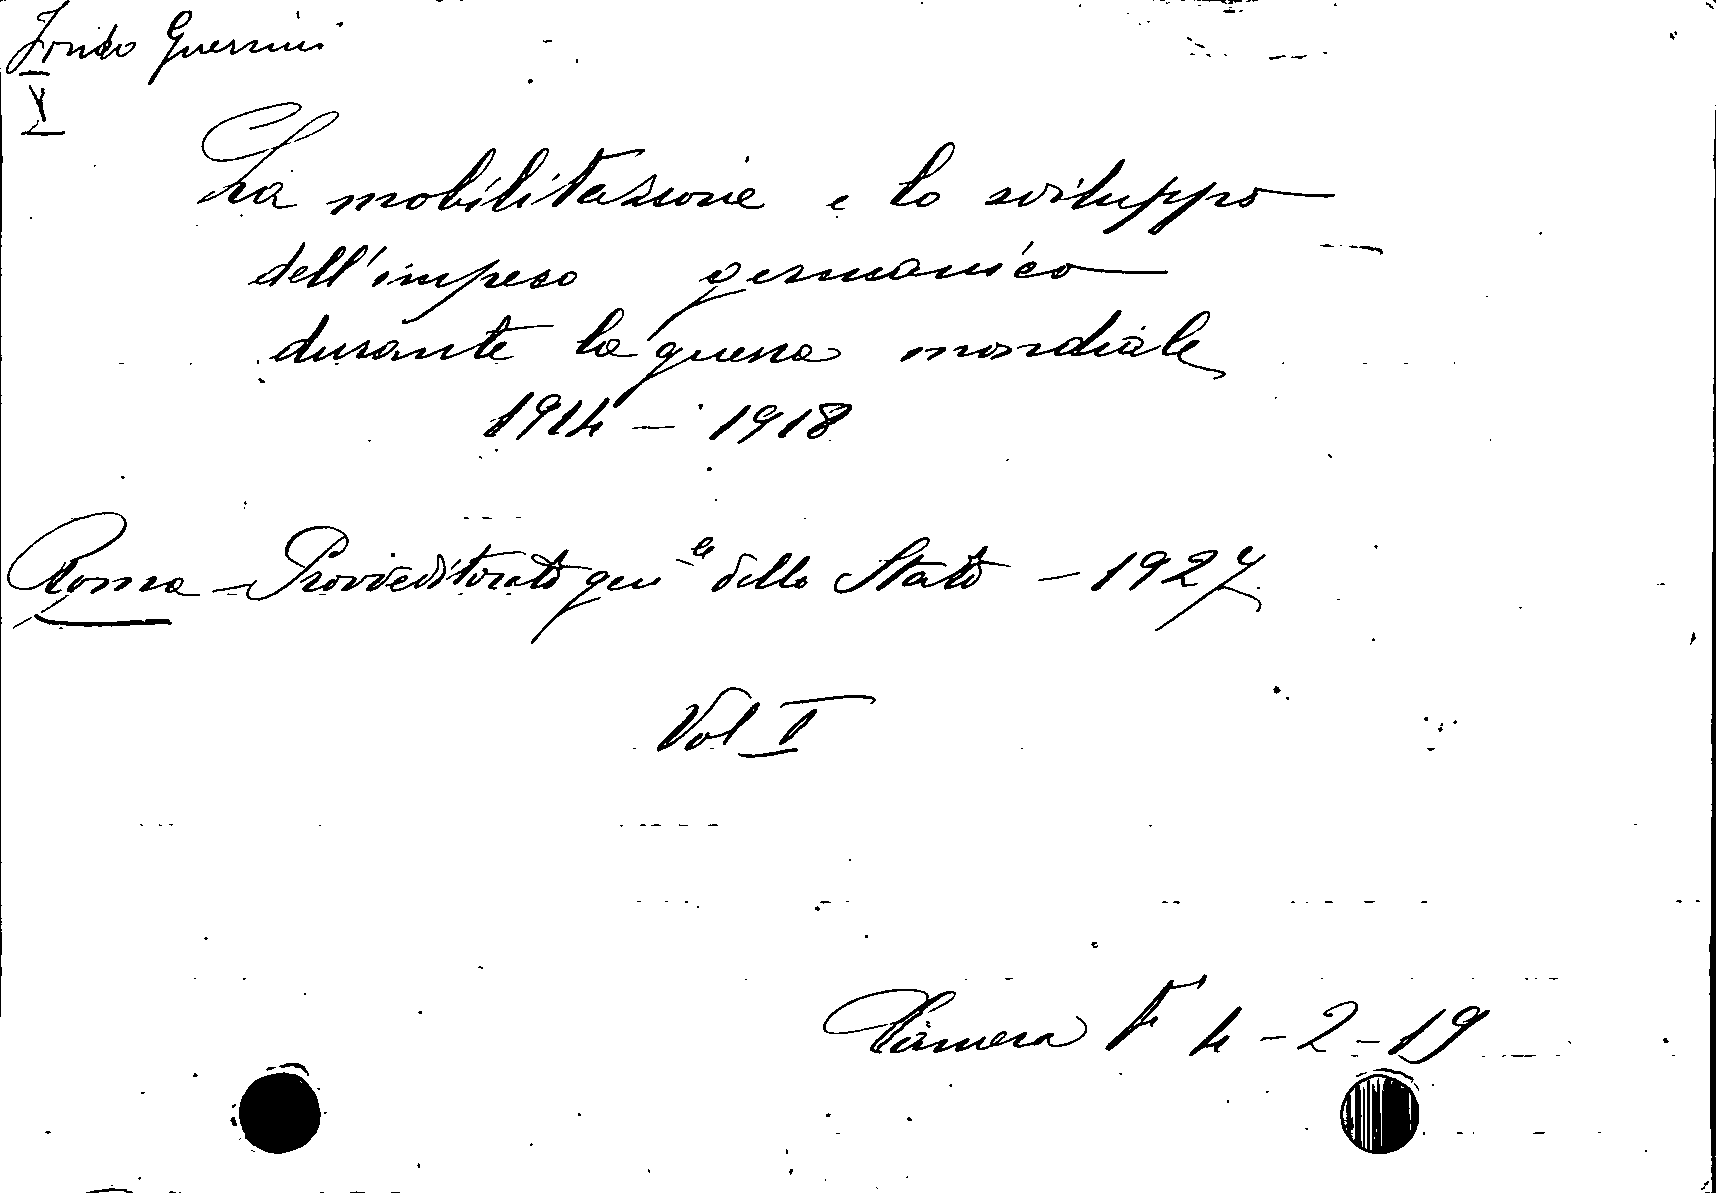 Fondo Guerrini
V
La mobilitazione e lo sviluppo
dell'impero germanico
durante la guerra mondiale
1914 - 1918
Roma - Provveditorato gen le dello Stato - 1927
Vol I
Camera F 4-2-19